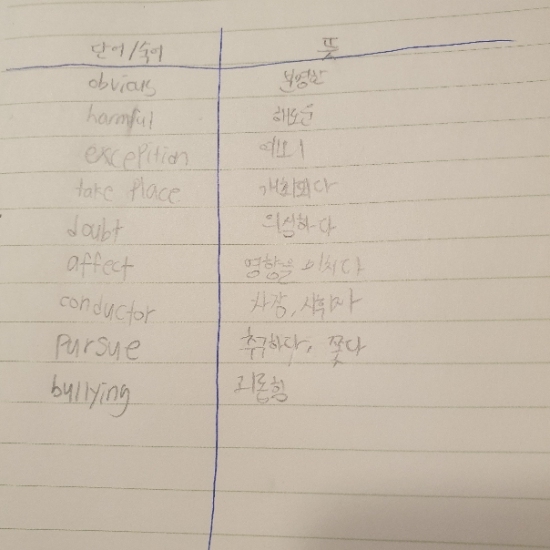 단어/숙어 뜻
obvious 분명한
harmful 해로운
excepition 예외
take place 개최되다
doubt 의심하다
affect 영향을 미치다
conductor 차장, 지휘자
pursue 추구하다, 쫓다
bullying 괴롭힘